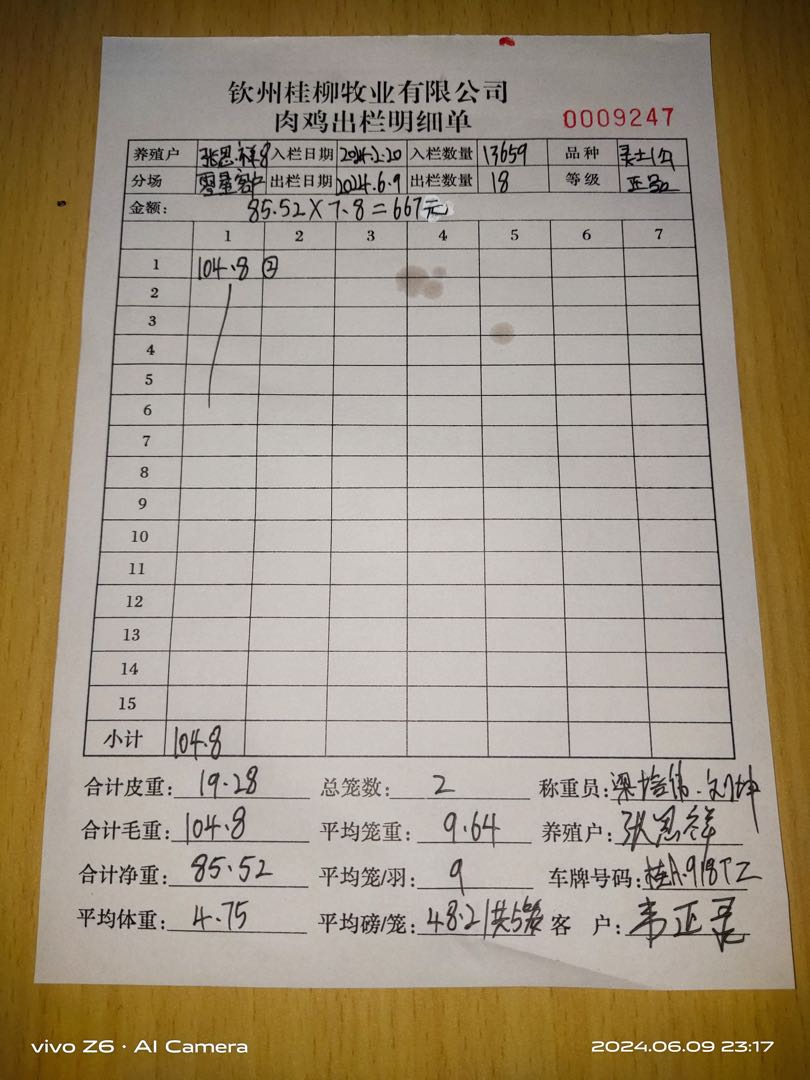 钦州桂柳牧业有限公司
肉鸡出栏明细单
0009247
养殖户 张恩祥8 入栏日期 2024.2.20 入栏数量 13659 品种
分场 零星客户 出栏日期 2024.6.9 出栏数量 18 等级
金额: 85.52×7.8=667元
1 2 3 4 5 6 7
1 104.8 ②
2
3
4
5
6
7
8
9
10
11
12
13
14
15
小计 104.8
合计皮重: 19.28 总笼数: 2 称重员:
合计毛重: 104.8 平均笼重: 9.64 养殖户: 张恩祥
合计净重: 85.52 平均笼/羽: 9 车牌号码: 桂A.918TZ
平均体重: 4.75 平均磅/笼: 48.2 客 户:
vivo Z6 · AI Camera
2024.06.09 23:17